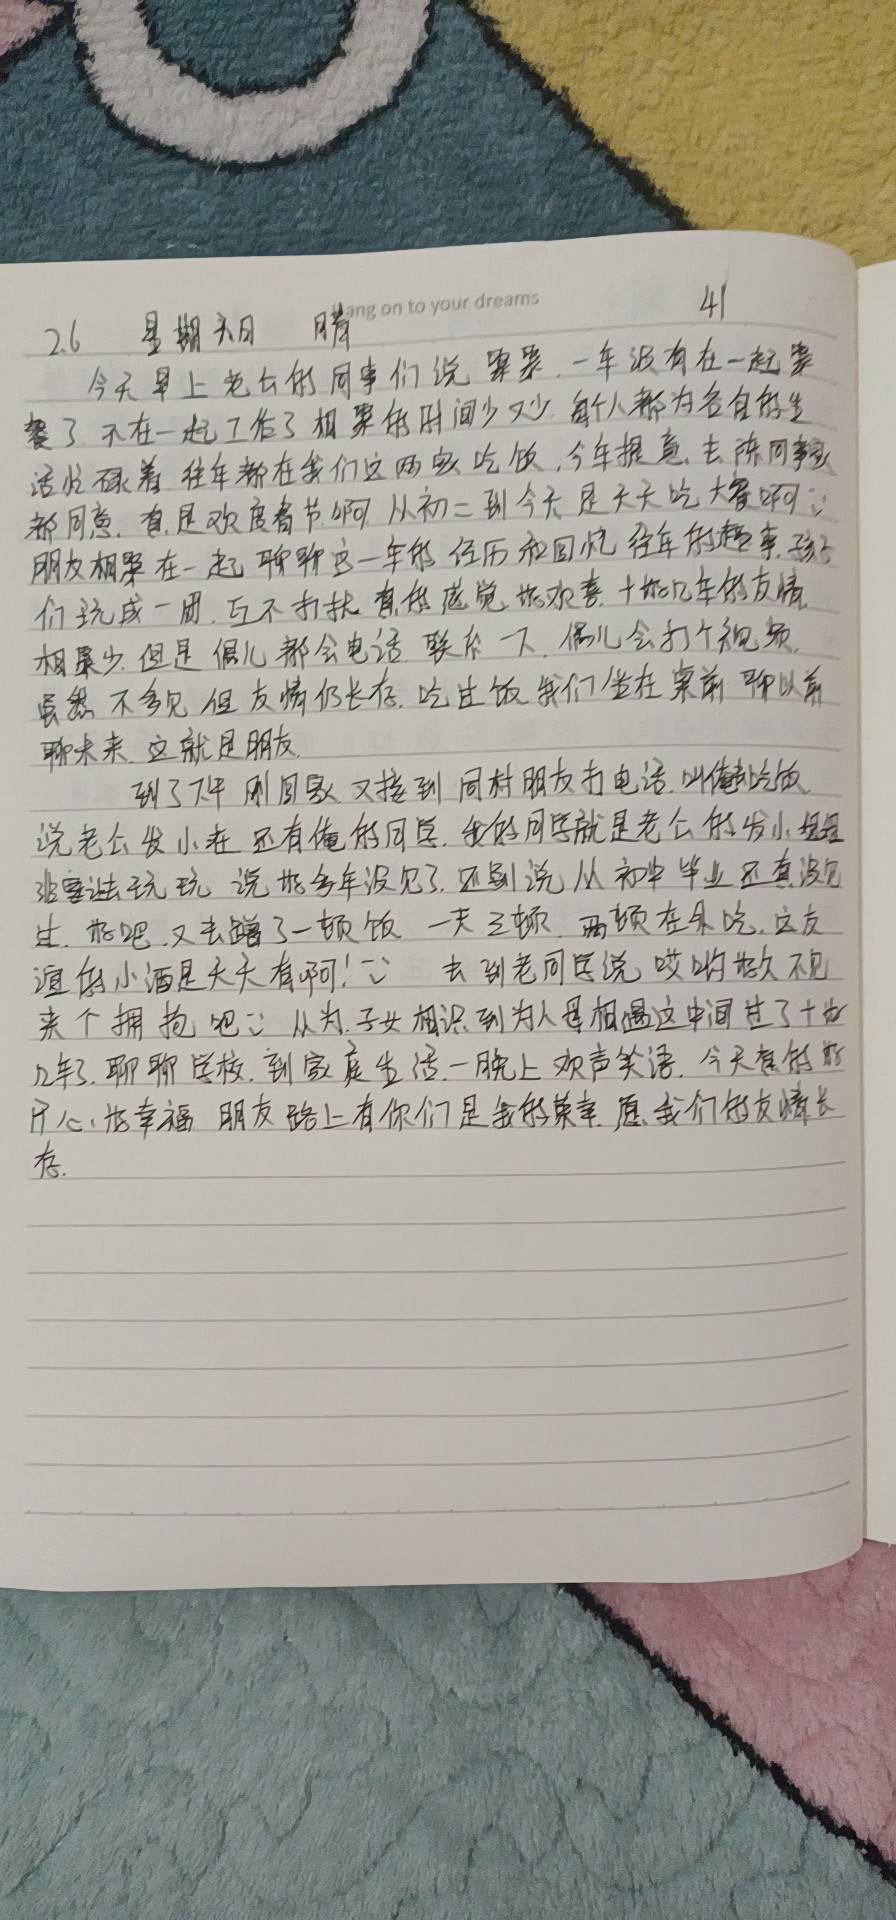 ang on to your dreams
2.6 星期天日 晴 41
今天早上老公的同事们说聚聚.一年没有在一起聚
餐了.不在一起工作了相聚的时间少又少.每个人都为各自的生
活忙碌着.往年都在我们这两家吃饭,今年提意.去陈同事家
都同意.真是欢度春节啊.从初二到今天是天天吃大餐啊
朋友相聚在一起聊聊这一年的经历和回忆往年的趣事.孩子
们玩成一团.互不打扰真的感觉好欢喜.十好几年的友情
相聚少.但是偶儿都会电话联系一下.偶儿会打个视频.
虽然不多见但友情仍长存.吃过饭我们坐在桌前聊以前
聊未来.这就是朋友.
到了下午刚回家又接到同村朋友打电话.叫俺去吃饭
说老公发小在还有俺的同学.我的同学就是老公的发小
非要让去玩玩说好多年没见了.还别说从初中毕业还真没见
过.好吧.又去蹭了一顿饭一天三顿.两顿在外吃.这友
谊的小酒是天天有啊! 去到老同学说哎哟好久不见
来个拥抱吧 从为子女相识到为人母相遇这中间过了十好
几年了.聊聊学校.到家庭生活.一晚上欢声笑语.今天真的好
开心.好幸福朋友路上有你们是我的荣幸.愿我们的友情长
存.